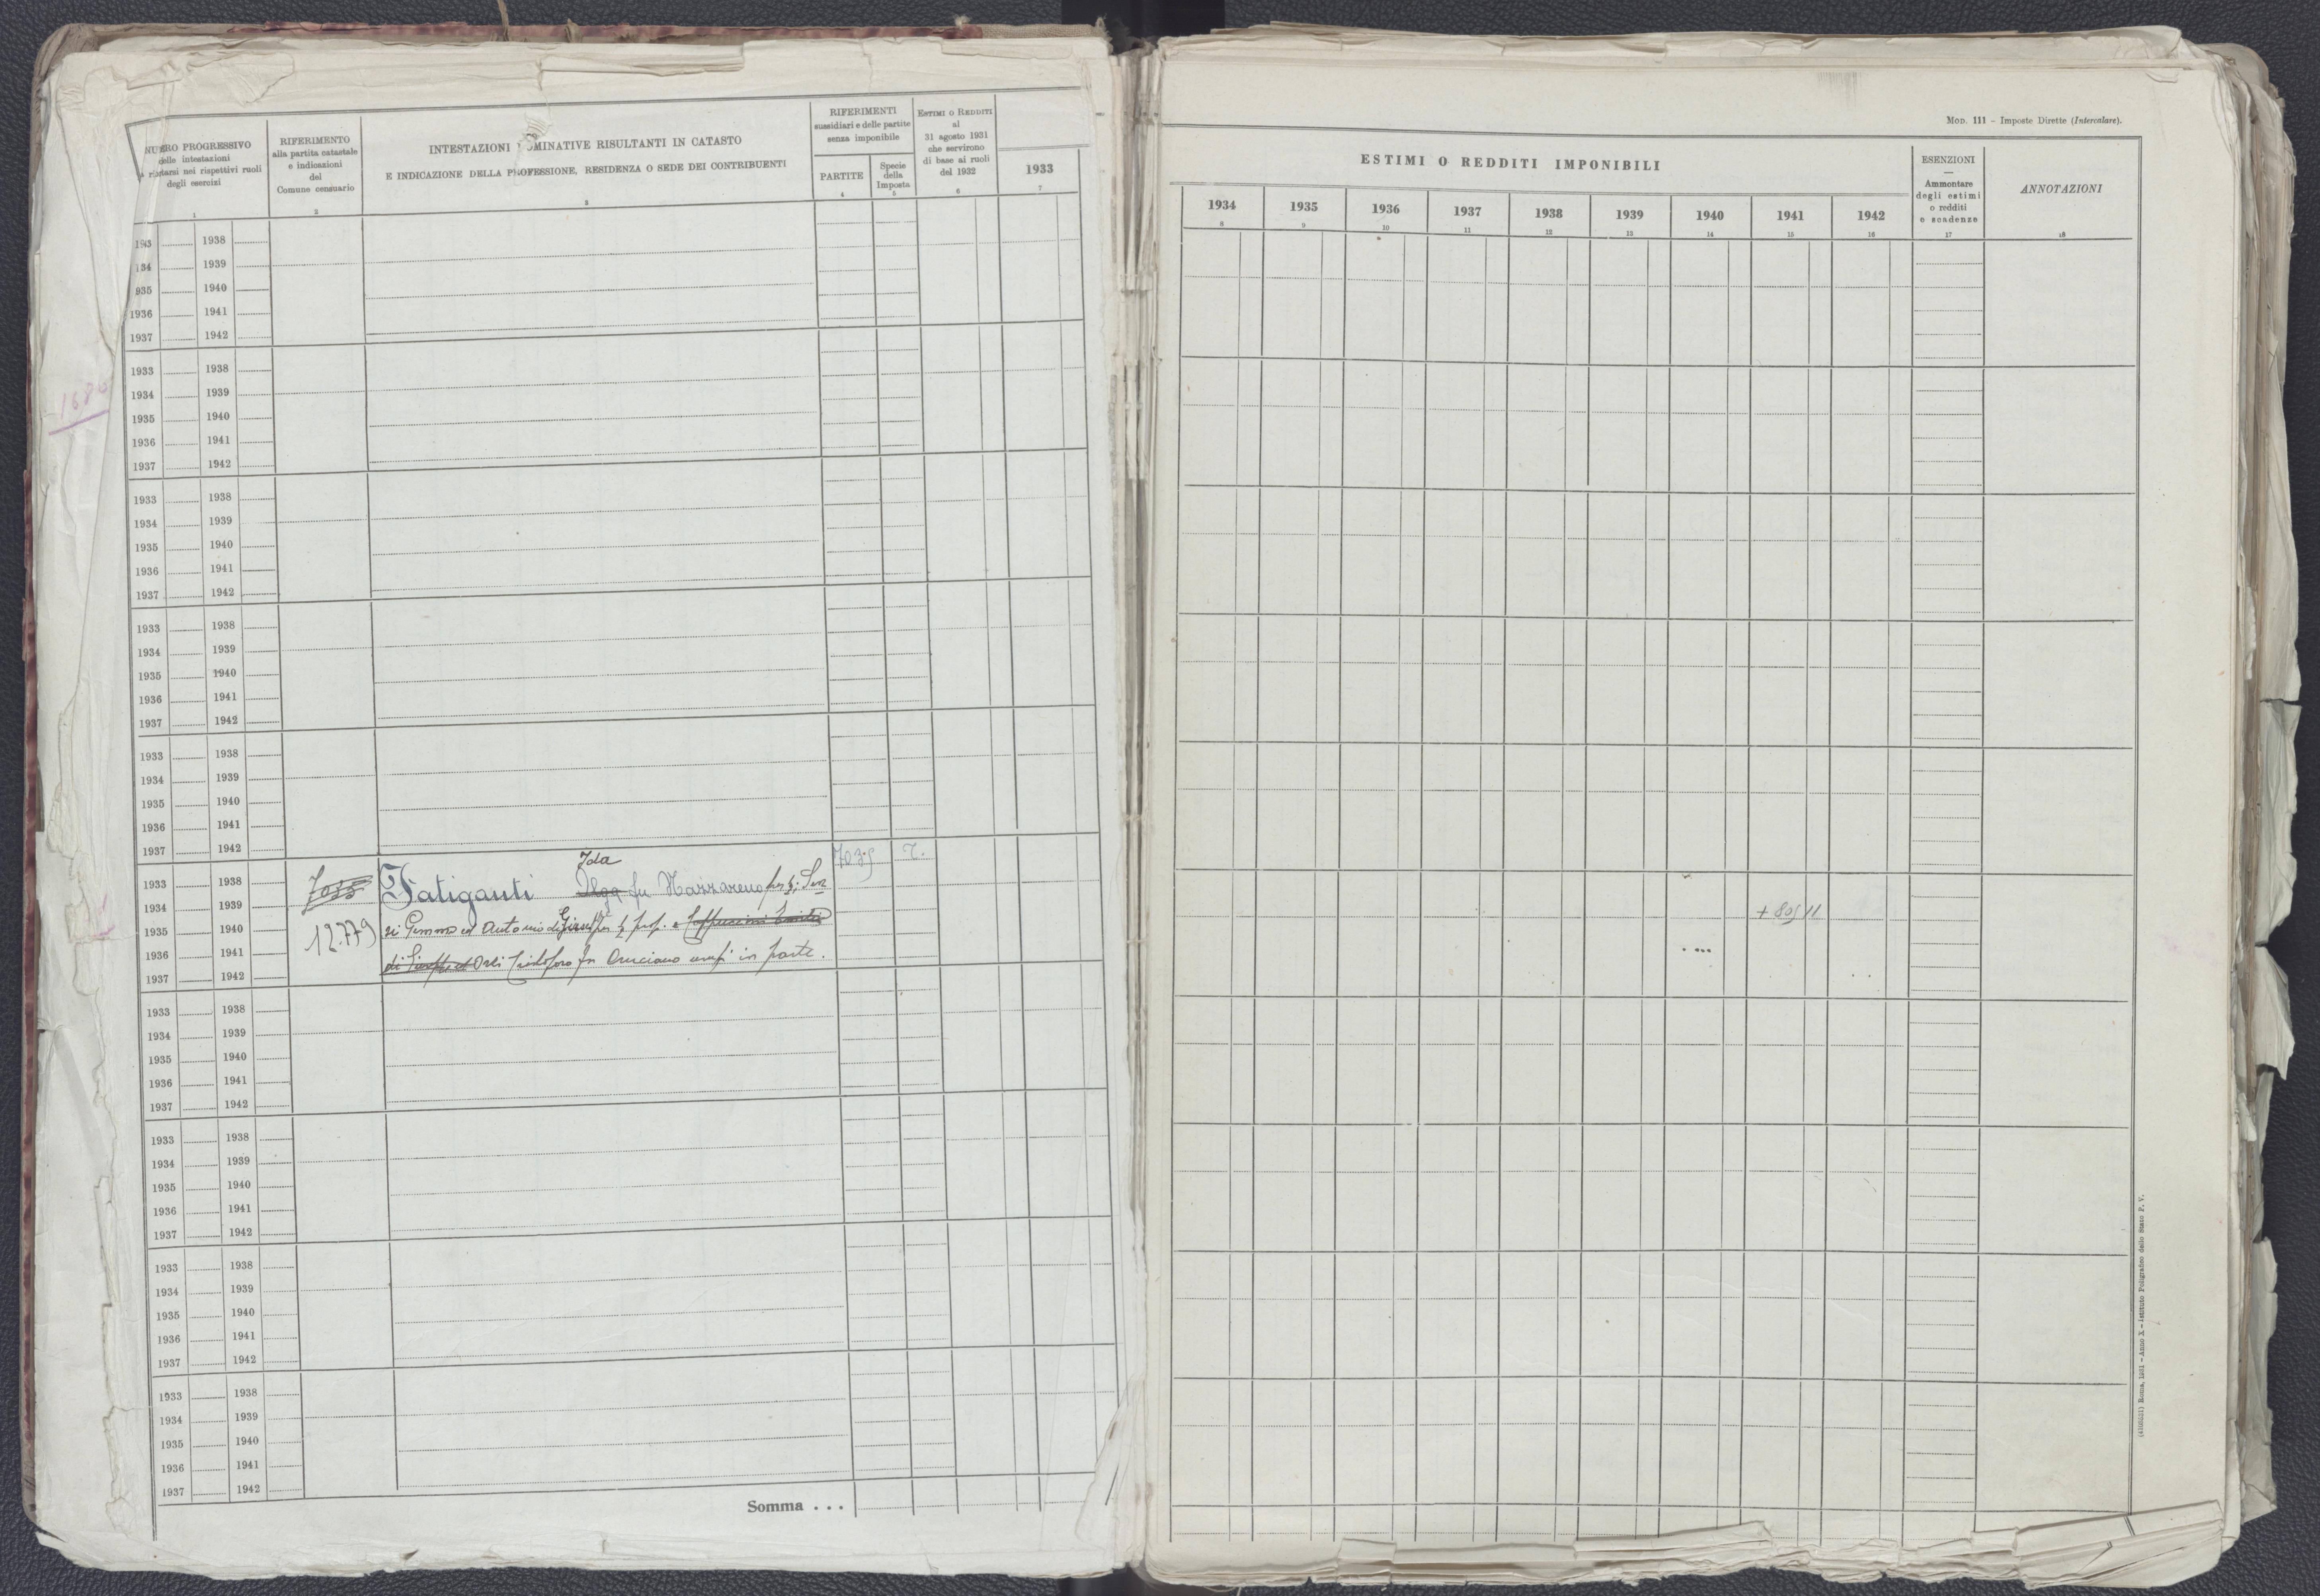 Mod. 111 – Imposte Dirette (Intercalare).
RIFERIMENTO
alla partita catastale
e indicazioni
del
Comune censuario
2
INTESTAZIONI NOMINATIVE RISULTANTI IN CATASTO
E INDICAZIONE DELLA PROFESSIONE, RESIDENZA O SEDE DEI CONTRIBUENTI
3
RIFERIMENTI
sussidiari e delle partite
senza imponibile
PARTITE
4
Specie
della
Imposta
5
ESTIMI O REDDITI
al
31 agosto 1931
che servirono
di base ai ruoli
del 1932
6
1933
7
PROGRESSIVO
delle intestazioni
nei rispettivi ruoli
degli esercizi
1
ESTIMI O REDDITI IMPONIBILI
1934 1935 1936 1937 1938 1939 1940 1941 1942
8 9 10 11 12 13 14 15 16
ESENZIONI
Ammontare
degli estimi
o redditi
e scadenze
17
ANNOTAZIONI
18
1938
1939
935 1940
1936 1941
1937 1942
1933 1938
1934 1939
1935 1940
1936 1941
1937 1942
1933 1938
1934 1939
1935 1940
1936 1941
1937 1942
1933 1938
1934 1939
1935 1940
1936 1941
1937 1942
1933 1938
1934 1939
1935 1940
1936 1941
1937 1942
1933 1938
1934 1939
1935 1940
1936 1941
1937 1942
Ida
Fatiganti Olga fu Nazzareno
12.779
Gemma ed Antonio
fu in parte.
1933 1938
1934 1939
1935 1940
1936 1941
1937 1942
1933 1938
1934 1939
1935 1940
1936 1941
1937 1942
1933 1938
1934 1939
1935 1940
1936 1941
1937 1942
1933 1938
1934 1939
1935 1940
1936 1941
1937 1942
Somma . . .